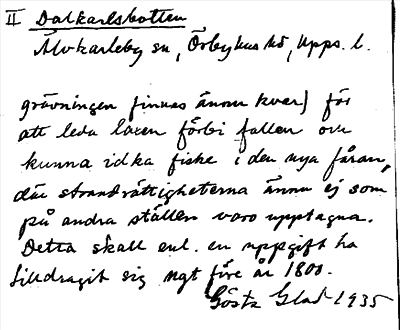 II Dalkarlsbotten
Älvkarleby sn, Örbyhus hd, Upps. l.
grävningen finnas ännu kvar) för
att leda laxen förbi fallen och
kunna idka fiske i den nya fåran,
där strandrättigheterna ännu ej som
på andra ställen voro upptagna.
Detta skall enl. en uppgift ha
tilldragit sig ngt före år 1800.
Gösta Glad 1935